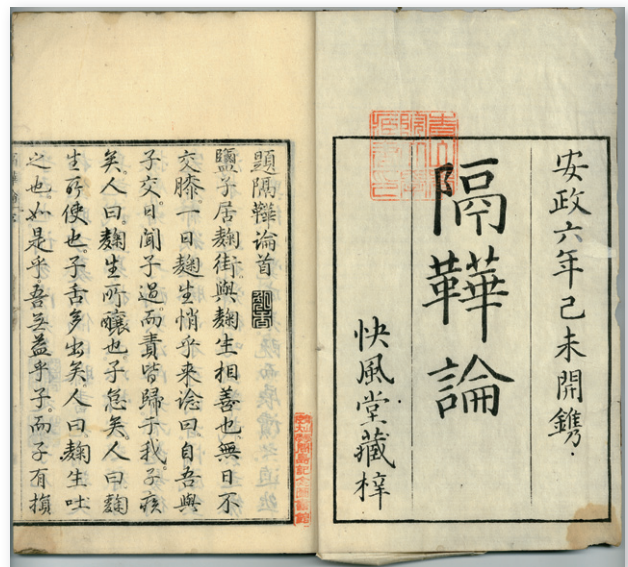 安政六年己未開鐫
隔鞾論
快風堂藏梓
題隔鞾論首
鹽子居麹街。與麹生相善也無日不
交膝一日麹生悄乎来諗曰自吾與
子交。日聞子過而責皆歸于我。子疾
矣。人曰。麹生所釀也子怠矣。人曰麹
生所使也。子舌多出矣。人曰麹生吐
之也如是乎吾无益乎子。而子有損